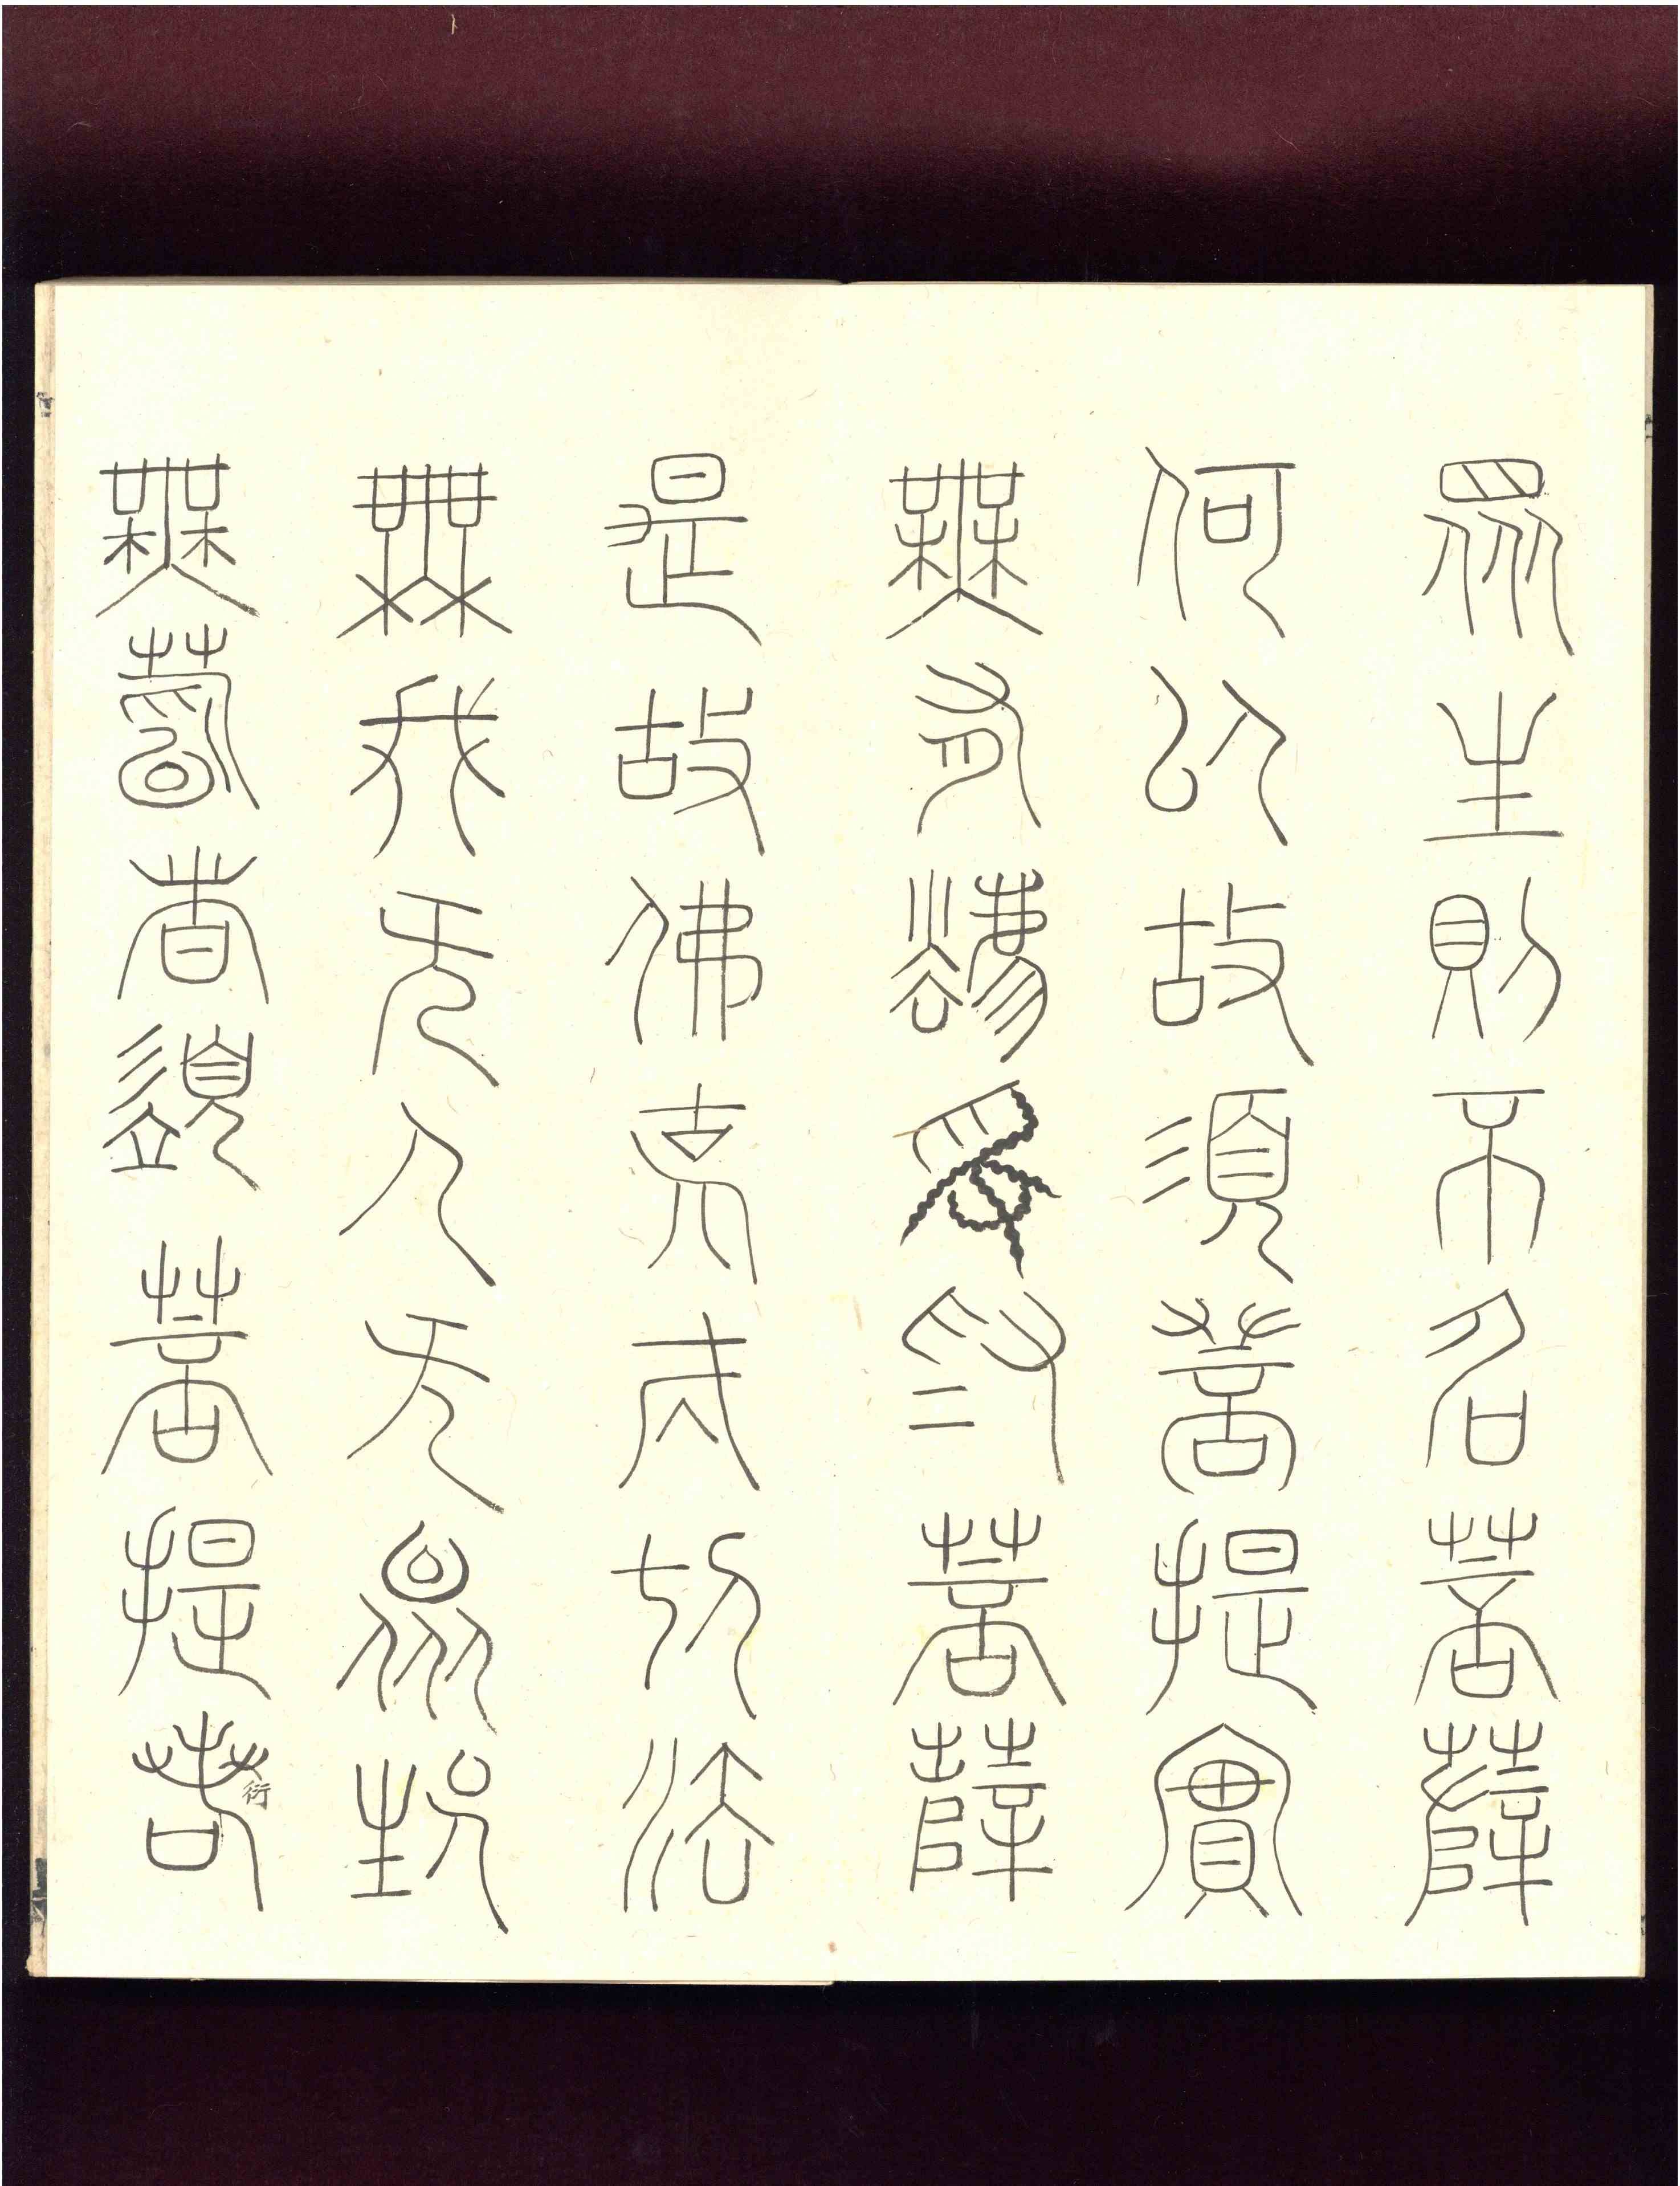 眾生則不名菩薩
何以故須菩提實
無有法名為菩薩
是故佛說一切法
無我无人无眾生
無壽者須菩提若
衍